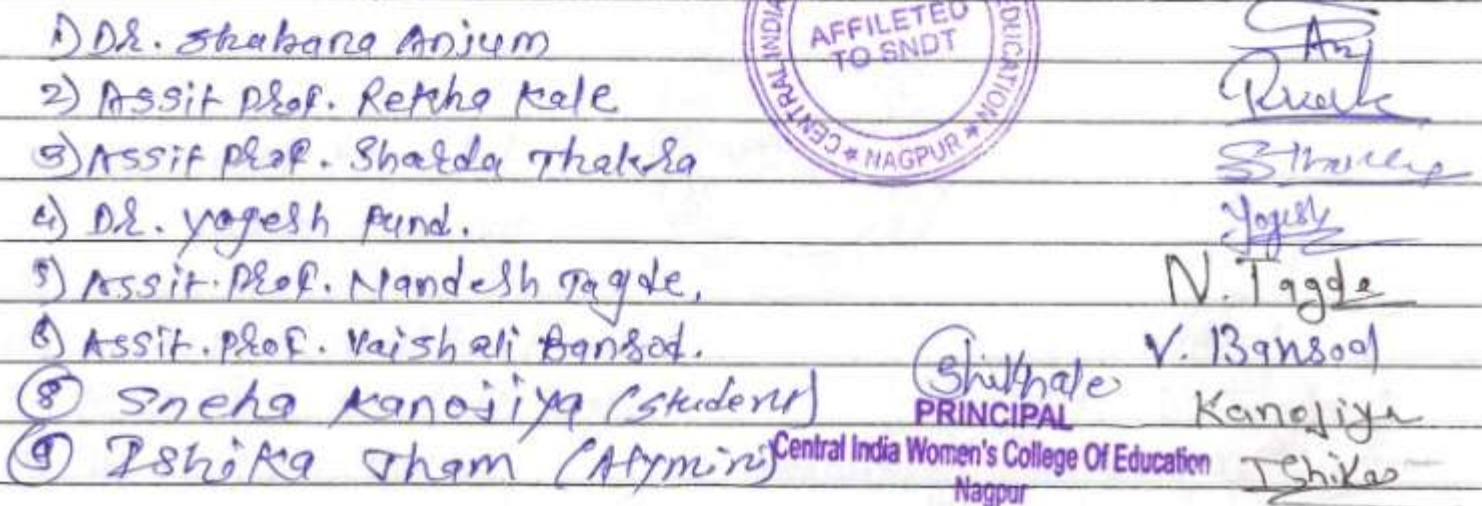 1) DR. Shabana Anjum
AFFILETED
TO SNDT
CENTRAL INDIA
EDUCATION * NAGPUR *
2) Assit prof. Rekha Kale
3) Assit prof. Sharda Thakra
4) DR. yogesh Pund.
Yogesh
5) Assit. prof. Nandesh Tagde.
N. Tagde
6) Assit. prof. Vaishali Bansod.
V. Bansod
8 Sneha Kanojiya (student)
PRINCIPAL
Kanojiya
9 Ishika Tham (Alymini)
Central India Women's College Of Education
Nagpur
Ishika